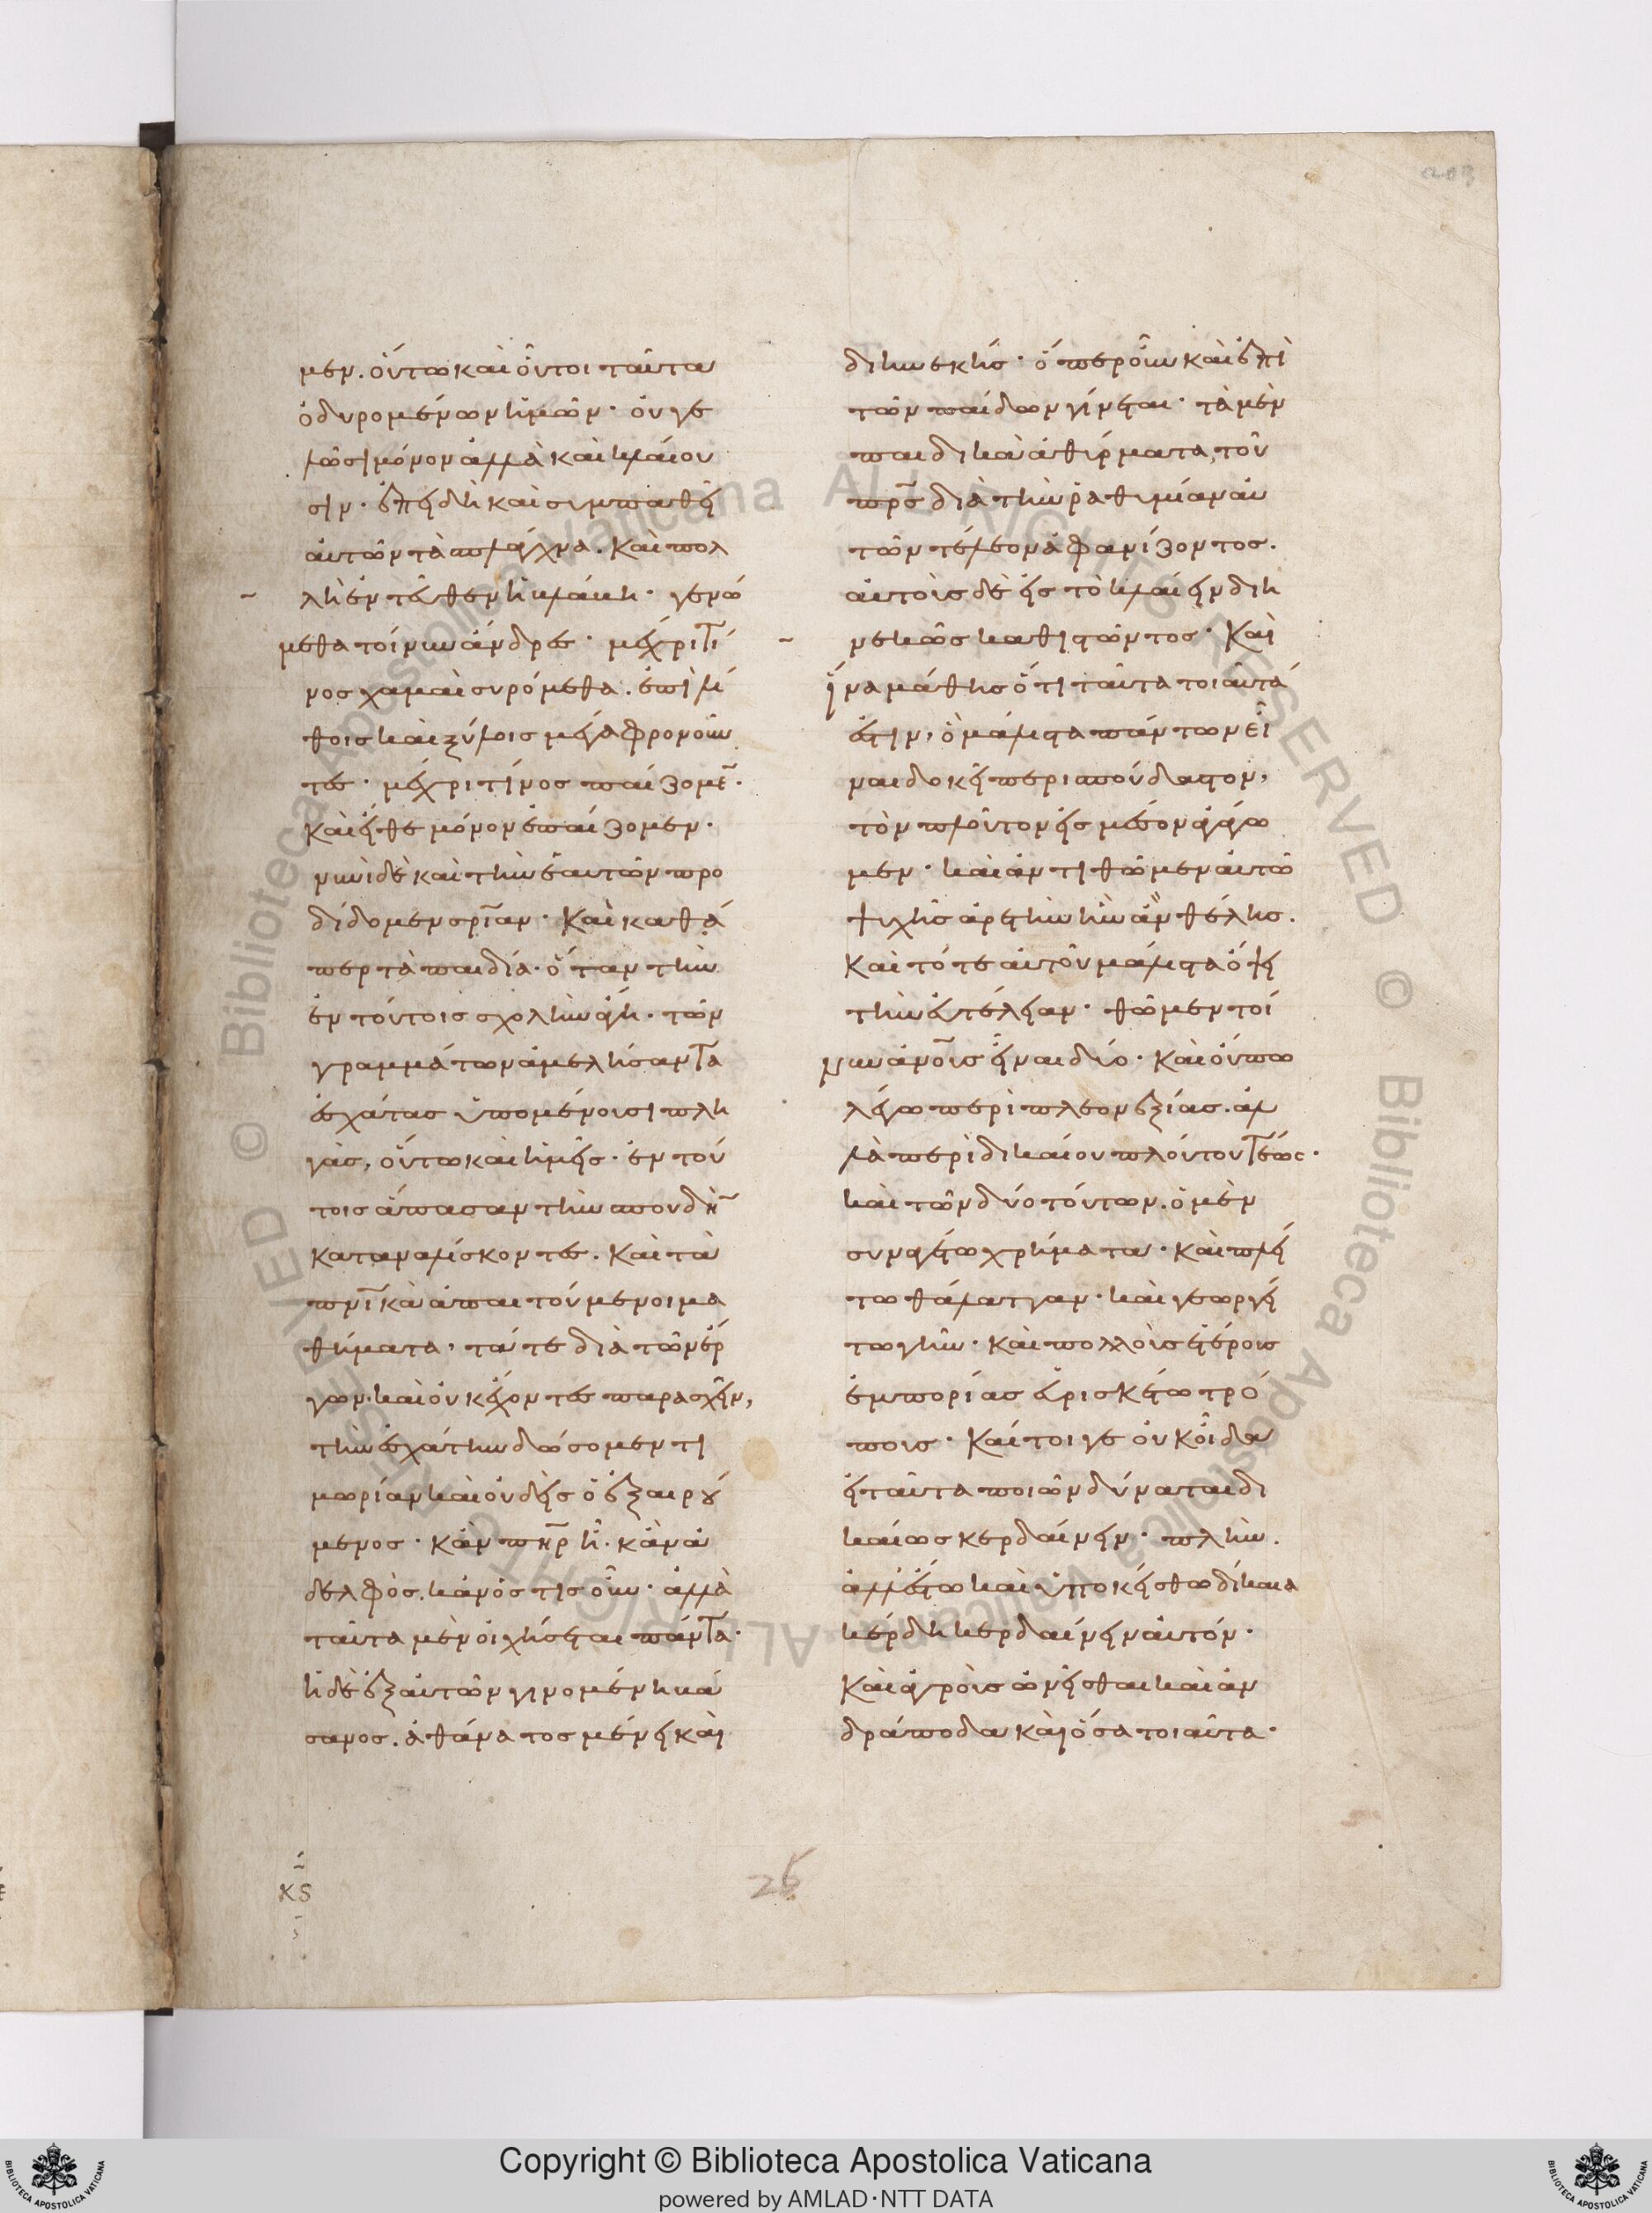 μεν. οὕτω καὶ οὗτοι ταῦτα
ὀδυρομένων ἡμῶν· οὐ γε
λῶσι μόνον ἀλλὰ καὶ κλαίου
σιν· ἐπειδὴ καὶ συμπαθῆ
αὐτῶν τὰ σπλάγχνα. Καὶ πολ
λὴ ἐντεῦθεν ἡ κλάκη· γενώ
μεθα τοίνυν ἄνδρες· μέχρι τί
νος χαμαὶ συρόμεθα. ἐπὶ λί
θοις καὶ ξύλοις μέγα φρονοῦν
τες· μέχρι τίνος παίζομε̅·
Καὶ εἴθε μόνον ἐπαίζομεν·
νυνὶ δὲ καὶ τὴν ἑαυτῶν προ
δίδομεν σρι̅αν· Καὶ καθά
περ τὰ παιδία· ὅταν τὴν
ἐν τούτοις σχολὴν ἄγῃ· τῶν
γραμμάτων ἀμελήσαντα
ἐσχάτας ὑπομένουσι πλη
γάς, οὕτω καὶ ἡμεῖς· ἐν τού
τοις ἅπασαν τὴν σπουδη̅
καταναλίσκοντες. Καὶ τὰ
πνι̅κὰ ἀπαιτούμενοι μα
θήματα, τότε διὰ τῶν ἔρ
γων· καὶ οὐκ ἔχοντες παρασχεῖν,
τὴν ἐσχάτην δώσομεν τι
μωρίαν καὶ οὐδεὶς ὁ ἐξαιρού
μενος· κἂν πη̅ρ ᾖ· κἂν ἀ
δελφός. κἂν ὅς τις οὖν· ἀλλὰ
ταῦτα μὲν οἰχήσεται πάντα·
ἡ δὲ ἐξ αὐτῶν γινομένη βά
σανος. ἀθάνατος μένει καὶ
διηνεκής· ὅπερ οὖν καὶ ἐπὶ
τῶν παίδων γίνεται· τὰ μὲν
παιδικὰ ἀθύρματα, τοῦ
πρς̅ διὰ τὴν ῥαθυμίαν αὐ
τῶν τέλεον ἀφανίζοντος.
αὐτοὺς δὲ εἰς τὸ κλαίειν διη
νεκῶς καθιστῶντος· Καὶ
ἵνα μάθῃς ὅτι ταῦτα τοιαῦτά
ἐστιν, ὃ μάλιστα πάντων εἶ
ναι δοκεῖ περισπούδαστον,
τὸν πλοῦτον εἰς μέσον ἀγάγω
μεν· καὶ ἀντιθῶμεν αὐτῶ
ψυχῆς ἀρετὴν ἣν ἂν θέλῃς.
Καὶ τότε αὐτοῦ μάλιστα ὄψει
τὴν εὐτέλειαν· θῶμεν τοί
νυν ἀνο̅υς εἶναι δύο· Καὶ οὔπω
λέγω περὶ πλεονεξίας. ἀλ
λὰ περὶ δικαίου πλούτου τέως·
καὶ τῶν δύο τούτων. ὁ μὲν
συναγέτω χρήματα· Καὶ πλεί
τω θάλατταν· καὶ γεωργεί
τω γῆν· Καὶ πολλοὺς ἑτέρους
ἐμπορίας εὑρισκέτω τρό
πους· Καίτοιγε οὐκ οἶδα
εἰ ταῦτα ποιῶν δύναται δι
καίως κερδαίνειν· πλὴν.
ἀλλ' ἔστω καὶ ὑποκείσθω δίκαια
κέρδη κερδαίνειν αὐτόν·
Καὶ ἀγροὺς ὠνεῖσθαι καὶ ἀν
δράποδα καὶ ὅσα τοιαῦτα·
κς
26